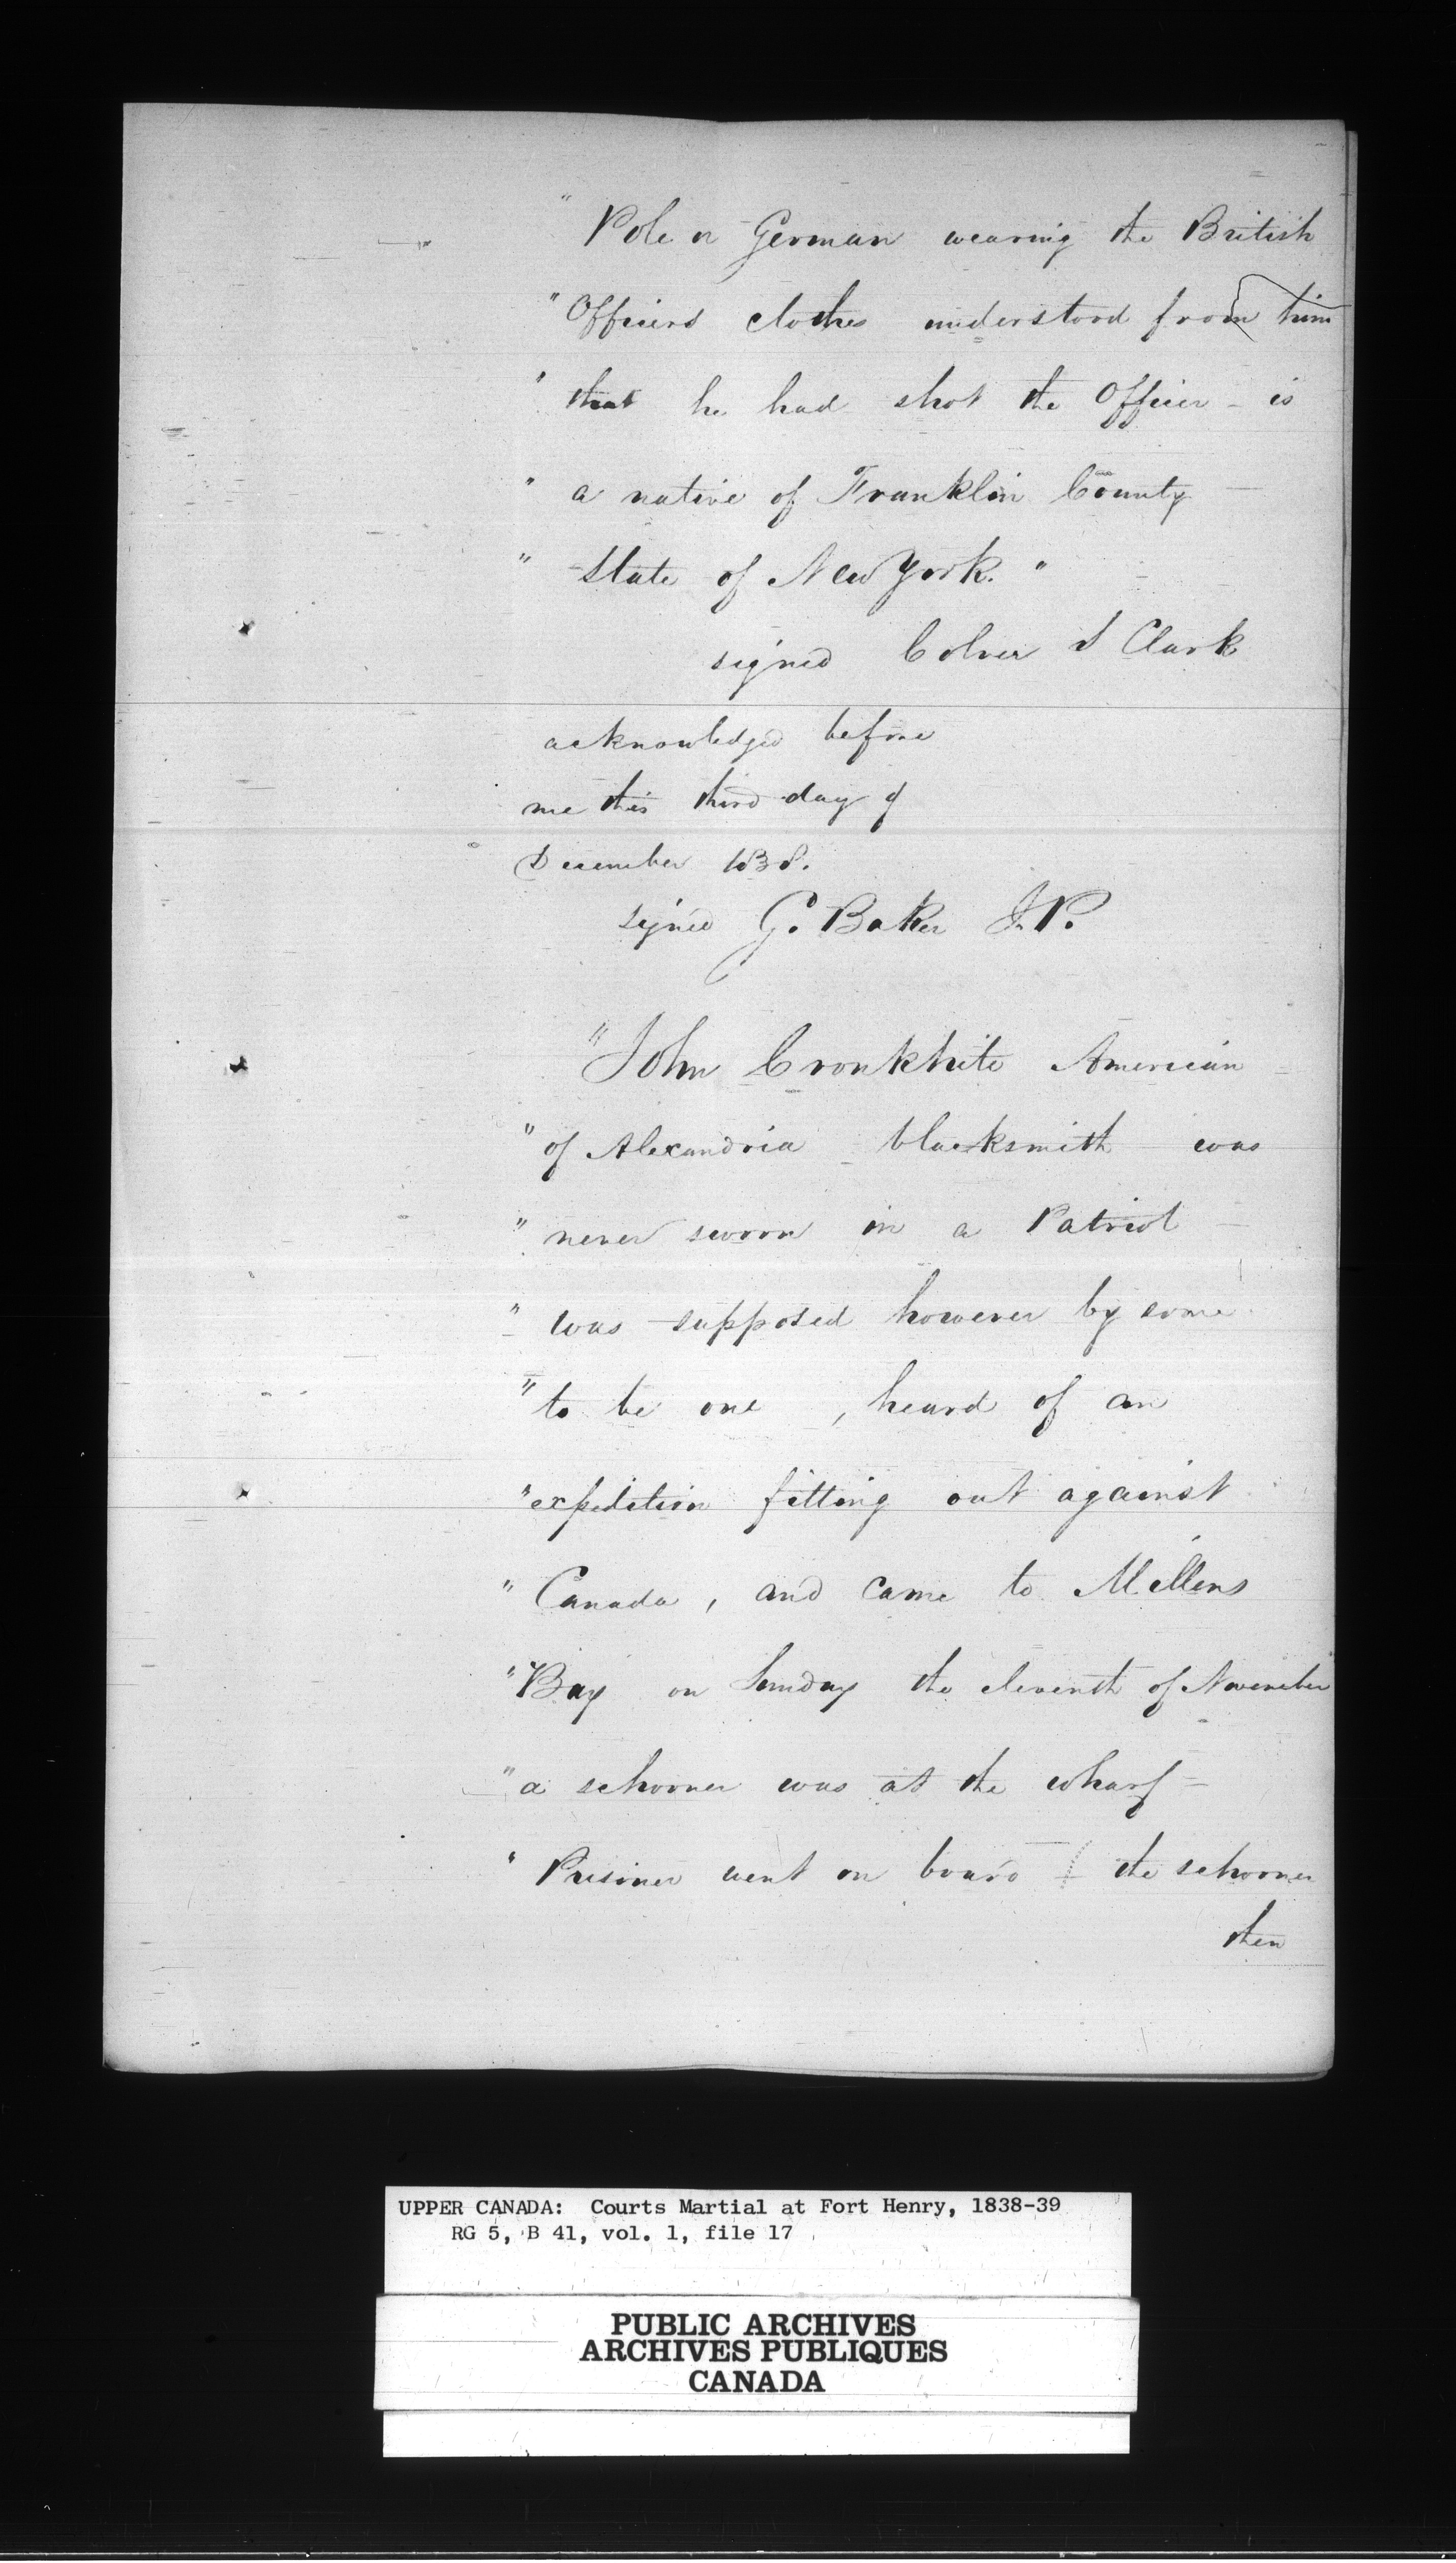 " Pole or German wearing the British
" Officers clothes understood from him
" that he had shot the Officer – is
" a native of Franklin County –
" State of New York. "
signed Colver S Clark
acknowledged before
me this third day of
December 1838.
signed G. Baker J.P.
" John Cronkhite American
" of Alexandria – blacksmith – was
" never sworn in a Patriot –
" was supposed however by some
" to be one , heard of an
" expedition fitting out against
" Canada , and came to Millens
" Bay on Sunday the eleventh of November
" a schooner was at the wharf –
" Prisoner went on board the schooner
then
UPPER CANADA: Courts Martial at Fort Henry, 1838-39
RG 5, B 41, vol. 1, file 17
PUBLIC ARCHIVES
ARCHIVES PUBLIQUES
CANADA